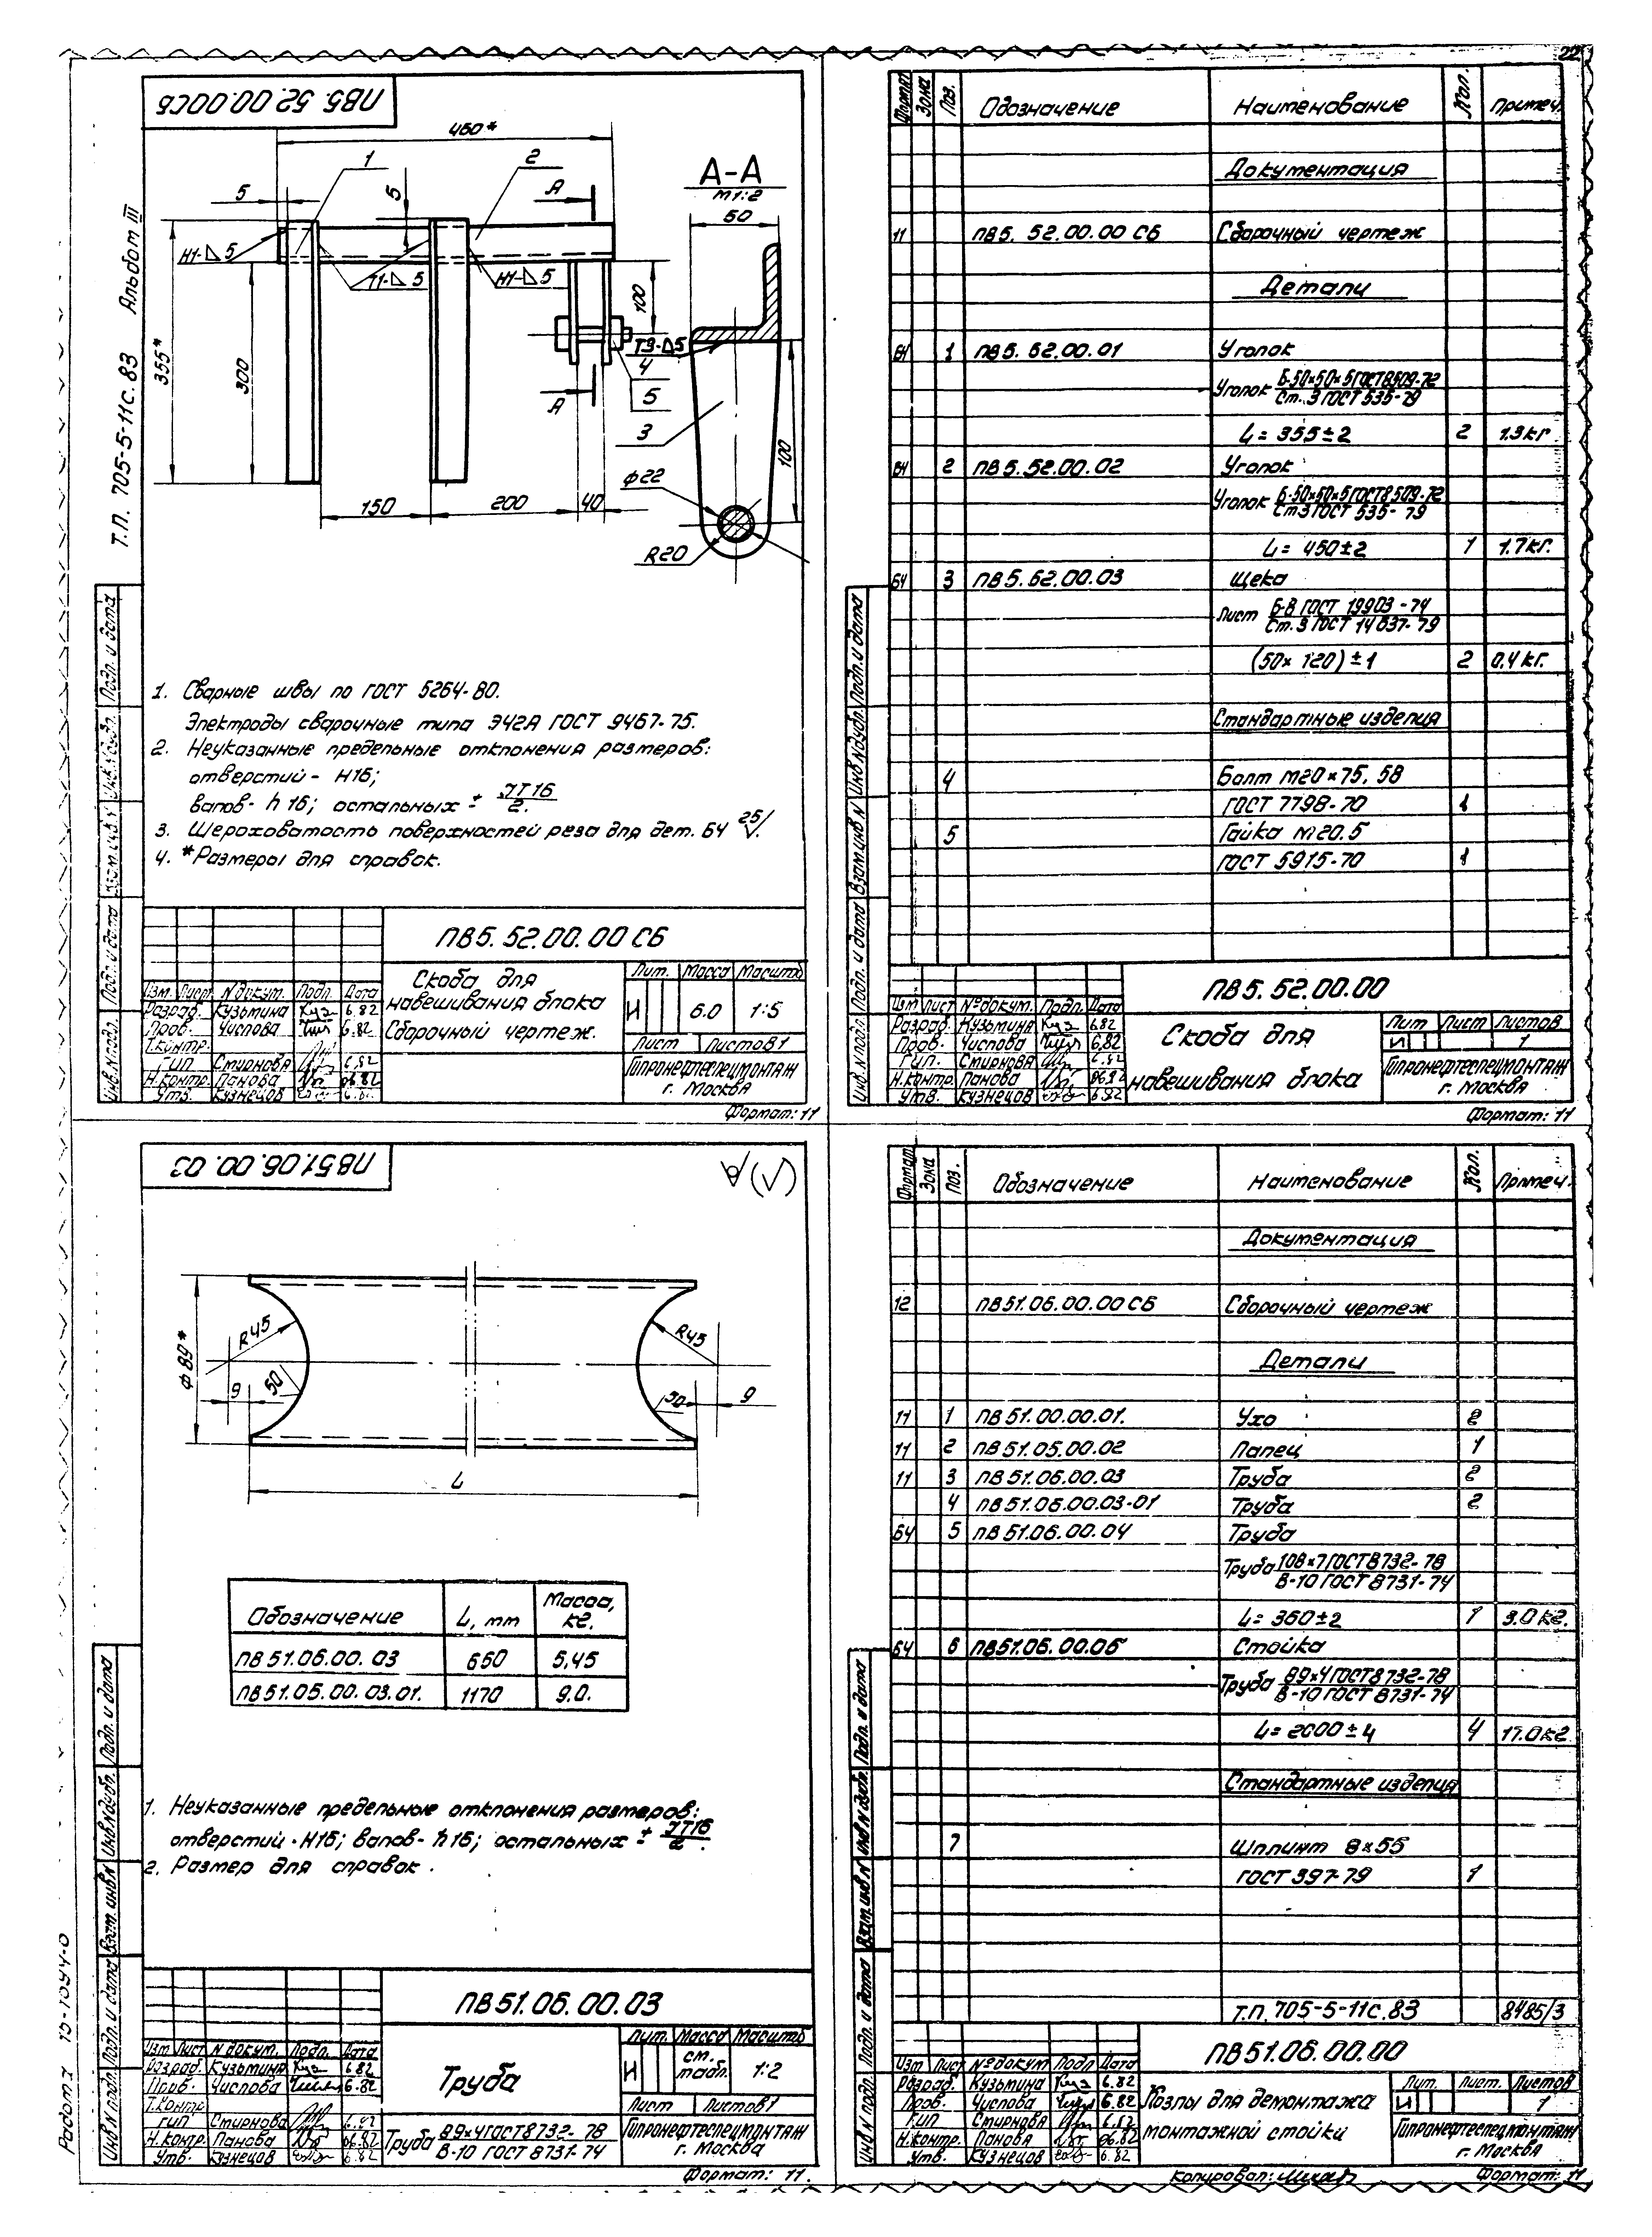 22
Т.П. 705-5-11с.83 Альбом III
ПВ5.52.00.00СБ
460*
1
2
5
5
А
А-А
М1:2
50
Н1-⊿5
Т1-⊿5
Н1-⊿5
355*
300
100
Т3-⊿5
4
5
А
3
100
150
200
40
ϕ22
R20
1. Сварные швы по ГОСТ 5264-80.
Электроды сварочные типа Э42А ГОСТ 9467-75.
2. Неуказанные предельные отклонения размеров:
отверстий - Н16;
валов - h16; остальных ± JT16/2.
3. Шероховатость поверхностей реза для дет. БЧ 25/√.
4. *Размеры для справок.
ПВ5.52.00.00 СБ
Скоба для
навешивания блока
Сборочный чертеж.
Лит. Масса Масштаб
И 6.0 1:5
Лист Листов 1
Гипронефтеспецмонтаж
г. Москва
Изм. Лист N докум. Подп. Дата
Разраб. Кузьмина 6.82
Пров. Числова 6.82
Т.контр.
ГИП Смирнова 6.82
Н.контр. Панова 06.82
Утв. Кузнецов 6.82
Инв. N подл. Подп. и дата Взам. инв. N Инв. N дубл. Подп. и дата
Формат: 11
Формат Зона Поз. Обозначение Наименование Кол. Примеч.
Документация
11 ПВ5.52.00.00 СБ Сборочный чертеж
Детали
БЧ 1 ПВ5.62.00.01 Уголок
Уголок Б-50×50×5 ГОСТ 8509-72 / Ст.3 ГОСТ 535-79
L= 355±2 2 1.3 кг
БЧ 2 ПВ5.52.00.02 Уголок
Уголок Б-50×50×5 ГОСТ 8509-72 / Ст3 ГОСТ 535-79
L= 450±2 1 1.7 кг.
БЧ 3 ПВ5.62.00.03 Щека
Лист Б-8 ГОСТ 19903-74 / Ст.3 ГОСТ 14637-79
(50×120)±1 2 0.4 кг.
Стандартные изделия
4 Болт М20×75.58
ГОСТ 7798-70 1
5 Гайка М20.5
ГОСТ 5915-70 1
ПВ5.52.00.00
Скоба для
навешивания блока
Лит Лист Листов
И 1
Гипронефтеспецмонтаж
г. Москва
Изм Лист N° докум. Подп. Дата
Разраб. Кузьмина 6.82
Пров. Числова 6.82
Гип. Смирнова 6.82
Н.контр. Панова 06.82
Утв. Кузнецов 6.82
Инв. N подл. Подп. и дата Взам. инв. N Инв. N дубл. Подп. и дата
Формат: 11
ПВ51.06.00.03
(√)
R45
R45
ϕ89*
9
50
50
9
L
Обозначение L, мм Масса, кг.
ПВ51.06.00.03 660 5,45
ПВ51.05.00.03.01. 1170 9.0.
1. Неуказанные предельные отклонения размеров:
отверстий - Н16; валов - h16; остальных ± JT16/2.
2. Размер для справок.
ПВ51.06.00.03
Труба
Труба 89×4 ГОСТ 8732-78 / В-10 ГОСТ 8731-74
Лит. Масса Масштаб
И см. табл. 1:2
Лист Листов 1
Гипронефтеспецмонтаж
г. Москва
Изм Лист N докум. Подп. Дата
Разраб. Кузьмина 6.82
Пров. Числова 6.82
Т.контр
ГИП Смирнова 6.82
Н.контр. Панова 06.82
Утв. Кузнецов 6.82
Инв. N подл. Подп. и дата Взам. инв. N Инв. N дубл. Подп. и дата
Формат: 11.
Формат Зона Поз. Обозначение Наименование Кол. Примеч.
Документация
12 ПВ51.06.00.00 СБ Сборочный чертеж
Детали
11 1 ПВ51.00.00.01. Ухо 2
11 2 ПВ51.05.00.02 Палец 1
11 3 ПВ51.06.00.03 Труба 2
4 ПВ51.06.00.03-01 Труба 2
БЧ 5 ПВ51.06.00.04 Труба
Труба 108×7 ГОСТ 8732-78 / В-10 ГОСТ 8731-74
L= 360±2 1 9.0 кг.
БЧ 6 ПВ51.06.00.06 Стойка
Труба 89×4 ГОСТ 8732-78 / В-10 ГОСТ 8731-74
L= 2000±4 4 17.0 кг
Стандартные изделия
7 Шплинт 8×55
ГОСТ 397-79 1
Т.П. 705-5-11с.83 8485/3
ПВ51.06.00.00
Козлы для демонтажа
монтажной стойки
Лит. Лист. Листов
И 1
Гипронефтеспецмонтаж
г. Москва
Изм Лист N° докум Подп Дата
Разраб. Кузьмина 6.82
Пров. Числова 6.82
Гип Смирнова 6.82
Н.контр. Панова 06.82
Утв. Кузнецов 6.82
Инв. N подл. Подп. и дата Взам. инв. N Инв. N дубл. Подп. и дата
Копировал:
Формат: 11